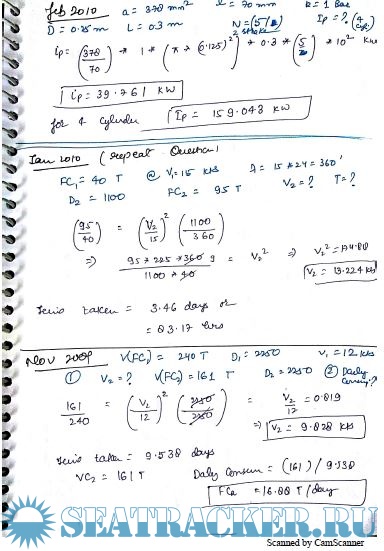 Feb 2010 a = 378 mm² l = 70 mm k = 1 Bar
D = 0.25 m L = 0.3 m N = (5/2) stroke Ip = ? (4 cyl.)
ip = (378/70) * 1 * (π * (0.125)²) * 0.3 * (5/2) * 10² kw
ip = 39.761 kW
for 4 cylinder Ip = 159.043 kW
Jan 2010 (repeat Question)
FC₁ = 40 T @ V₁ = 15 kts D₁ = 15*24 = 360'
D₂ = 1100 FC₂ = 95 T V₂ = ? T = ?
(95/40) = (V₂/15)² (1100/360)
⇒ 95 * 225 * 360 / 1100 * 40 = V₂² ⇒ V₂² = 174.88
V₂ = 13.224 kts
Time taken = 3.46 days or
= 83.17 hrs
Nov 2009 V(FC₁) = 240 T D₁ = 2250 V₁ = 12 kts
① V₂ = ? V(FC₂) = 161 T D₂ = 2250 ② Daily Consump?
161/240 = (V₂/12)² (2250/2250) = V₂/12 = 0.819
⇒ V₂ = 9.828 kts
Time taken = 9.538 days
VC₂ = 161 T Daily Consum = (161) / 9.538
FC₂ = 16.88 T/day
SEATRACKER.RU
Scanned by CamScanner